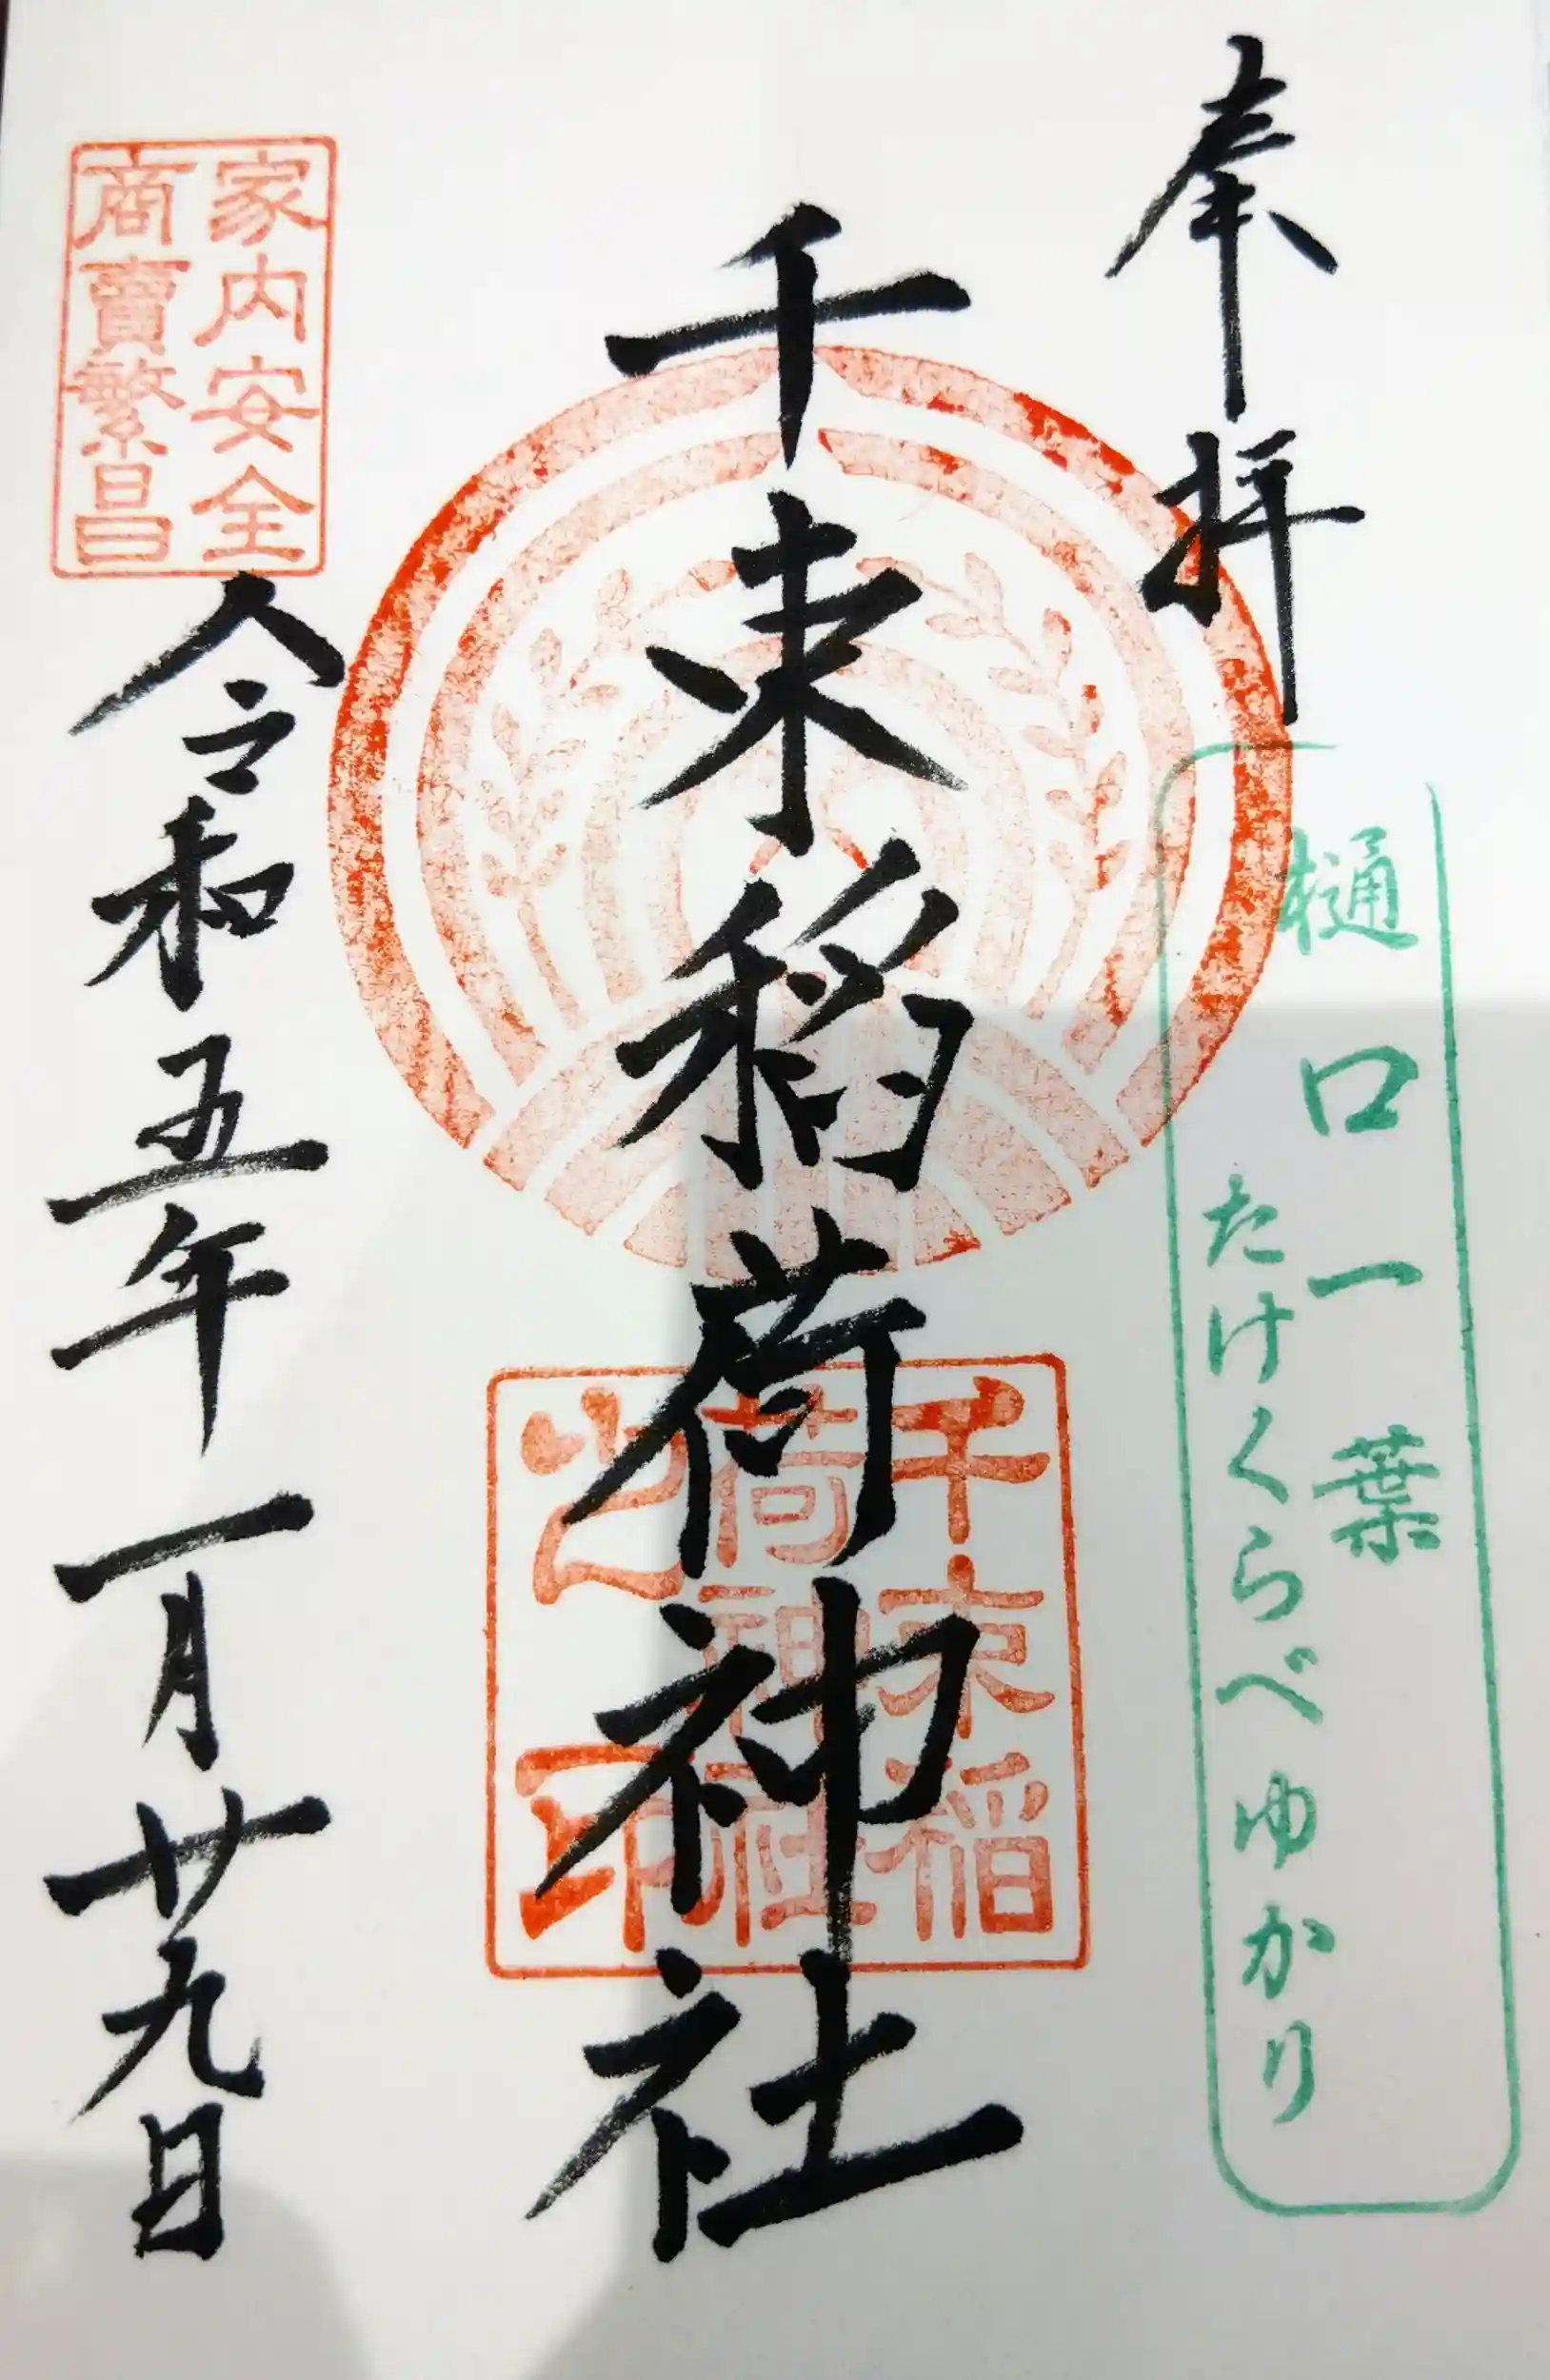 奉拝
樋口一葉
たけくらべゆかり
千束稲荷神社
千束稲
荷神社
之印
家内安全
商賣繁昌
令和五年一月廿九日